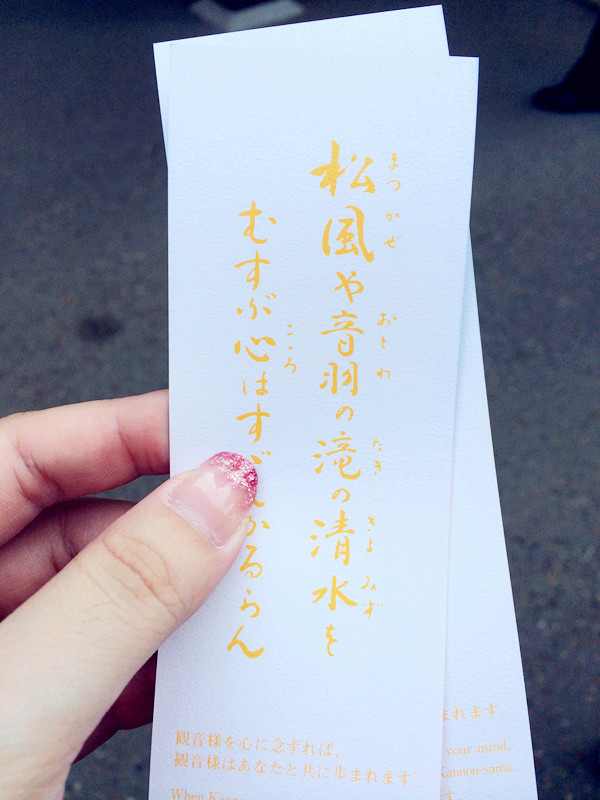 まつかぜ おとわ たき きよみず
松風や音羽の滝の清水を
こころ
むすぶ心はす かるらん
観音様を心に念ずれば、
観音様はあなたと共に歩まれます。
When
まれます。
your mind,
Kannon-sama
す。